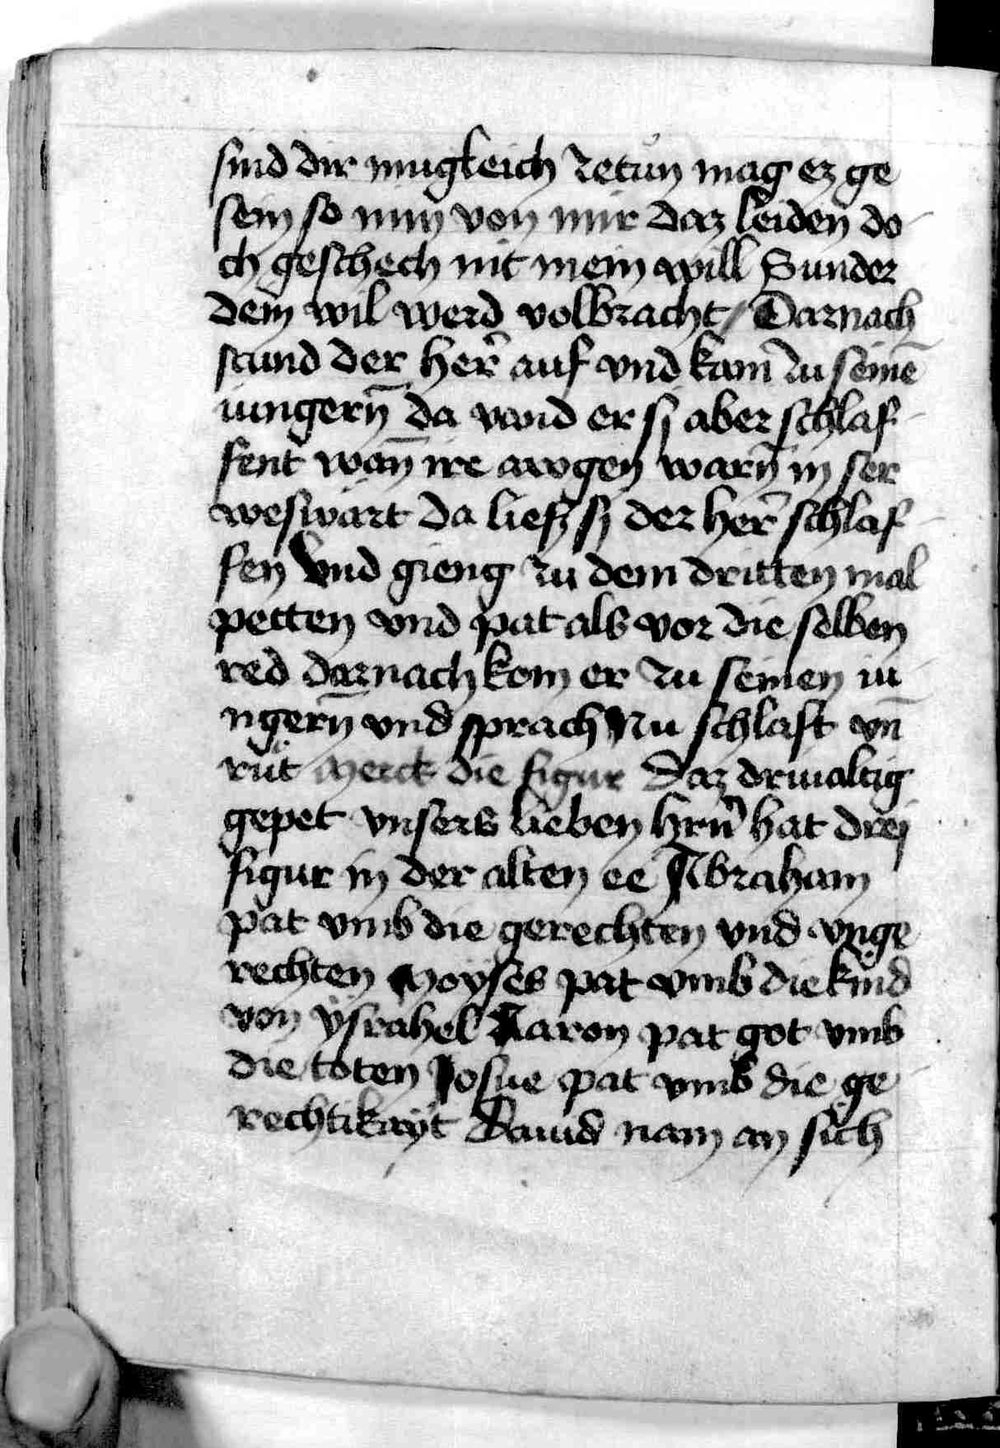 sind dir mugleich zetün mag ez ge
sein so nim von mir daz leiden do
ch geschech nit mein will Sunder
dein wil werd volbracht / Darnach
stund der her̃ auf vnd kam zu seinē
iungerñ da vand er sy aber schlaf
fent wan̄ ire awgen warñ in ser
beswärt da liesz sy der her̃ schlaf
fen Vnd gieng zu dem dritten mal
petten vnd pat als vor die selben
red darnach kom er zu seinen iu
ngerñ vnd sprach Nu schlaft vn̄
rüt Merck die figur Daz driualtig
gepet vnsers lieben hrñ hat drej
figur in der alten ee Abraham
pat vmb die gerechten vnd vnge
rechten Moyses pat vmb die kind
von ysrahel Aaron pat got vmb
die toten Josue pat vmb die ge
rechtikayt Dauid nam an sich